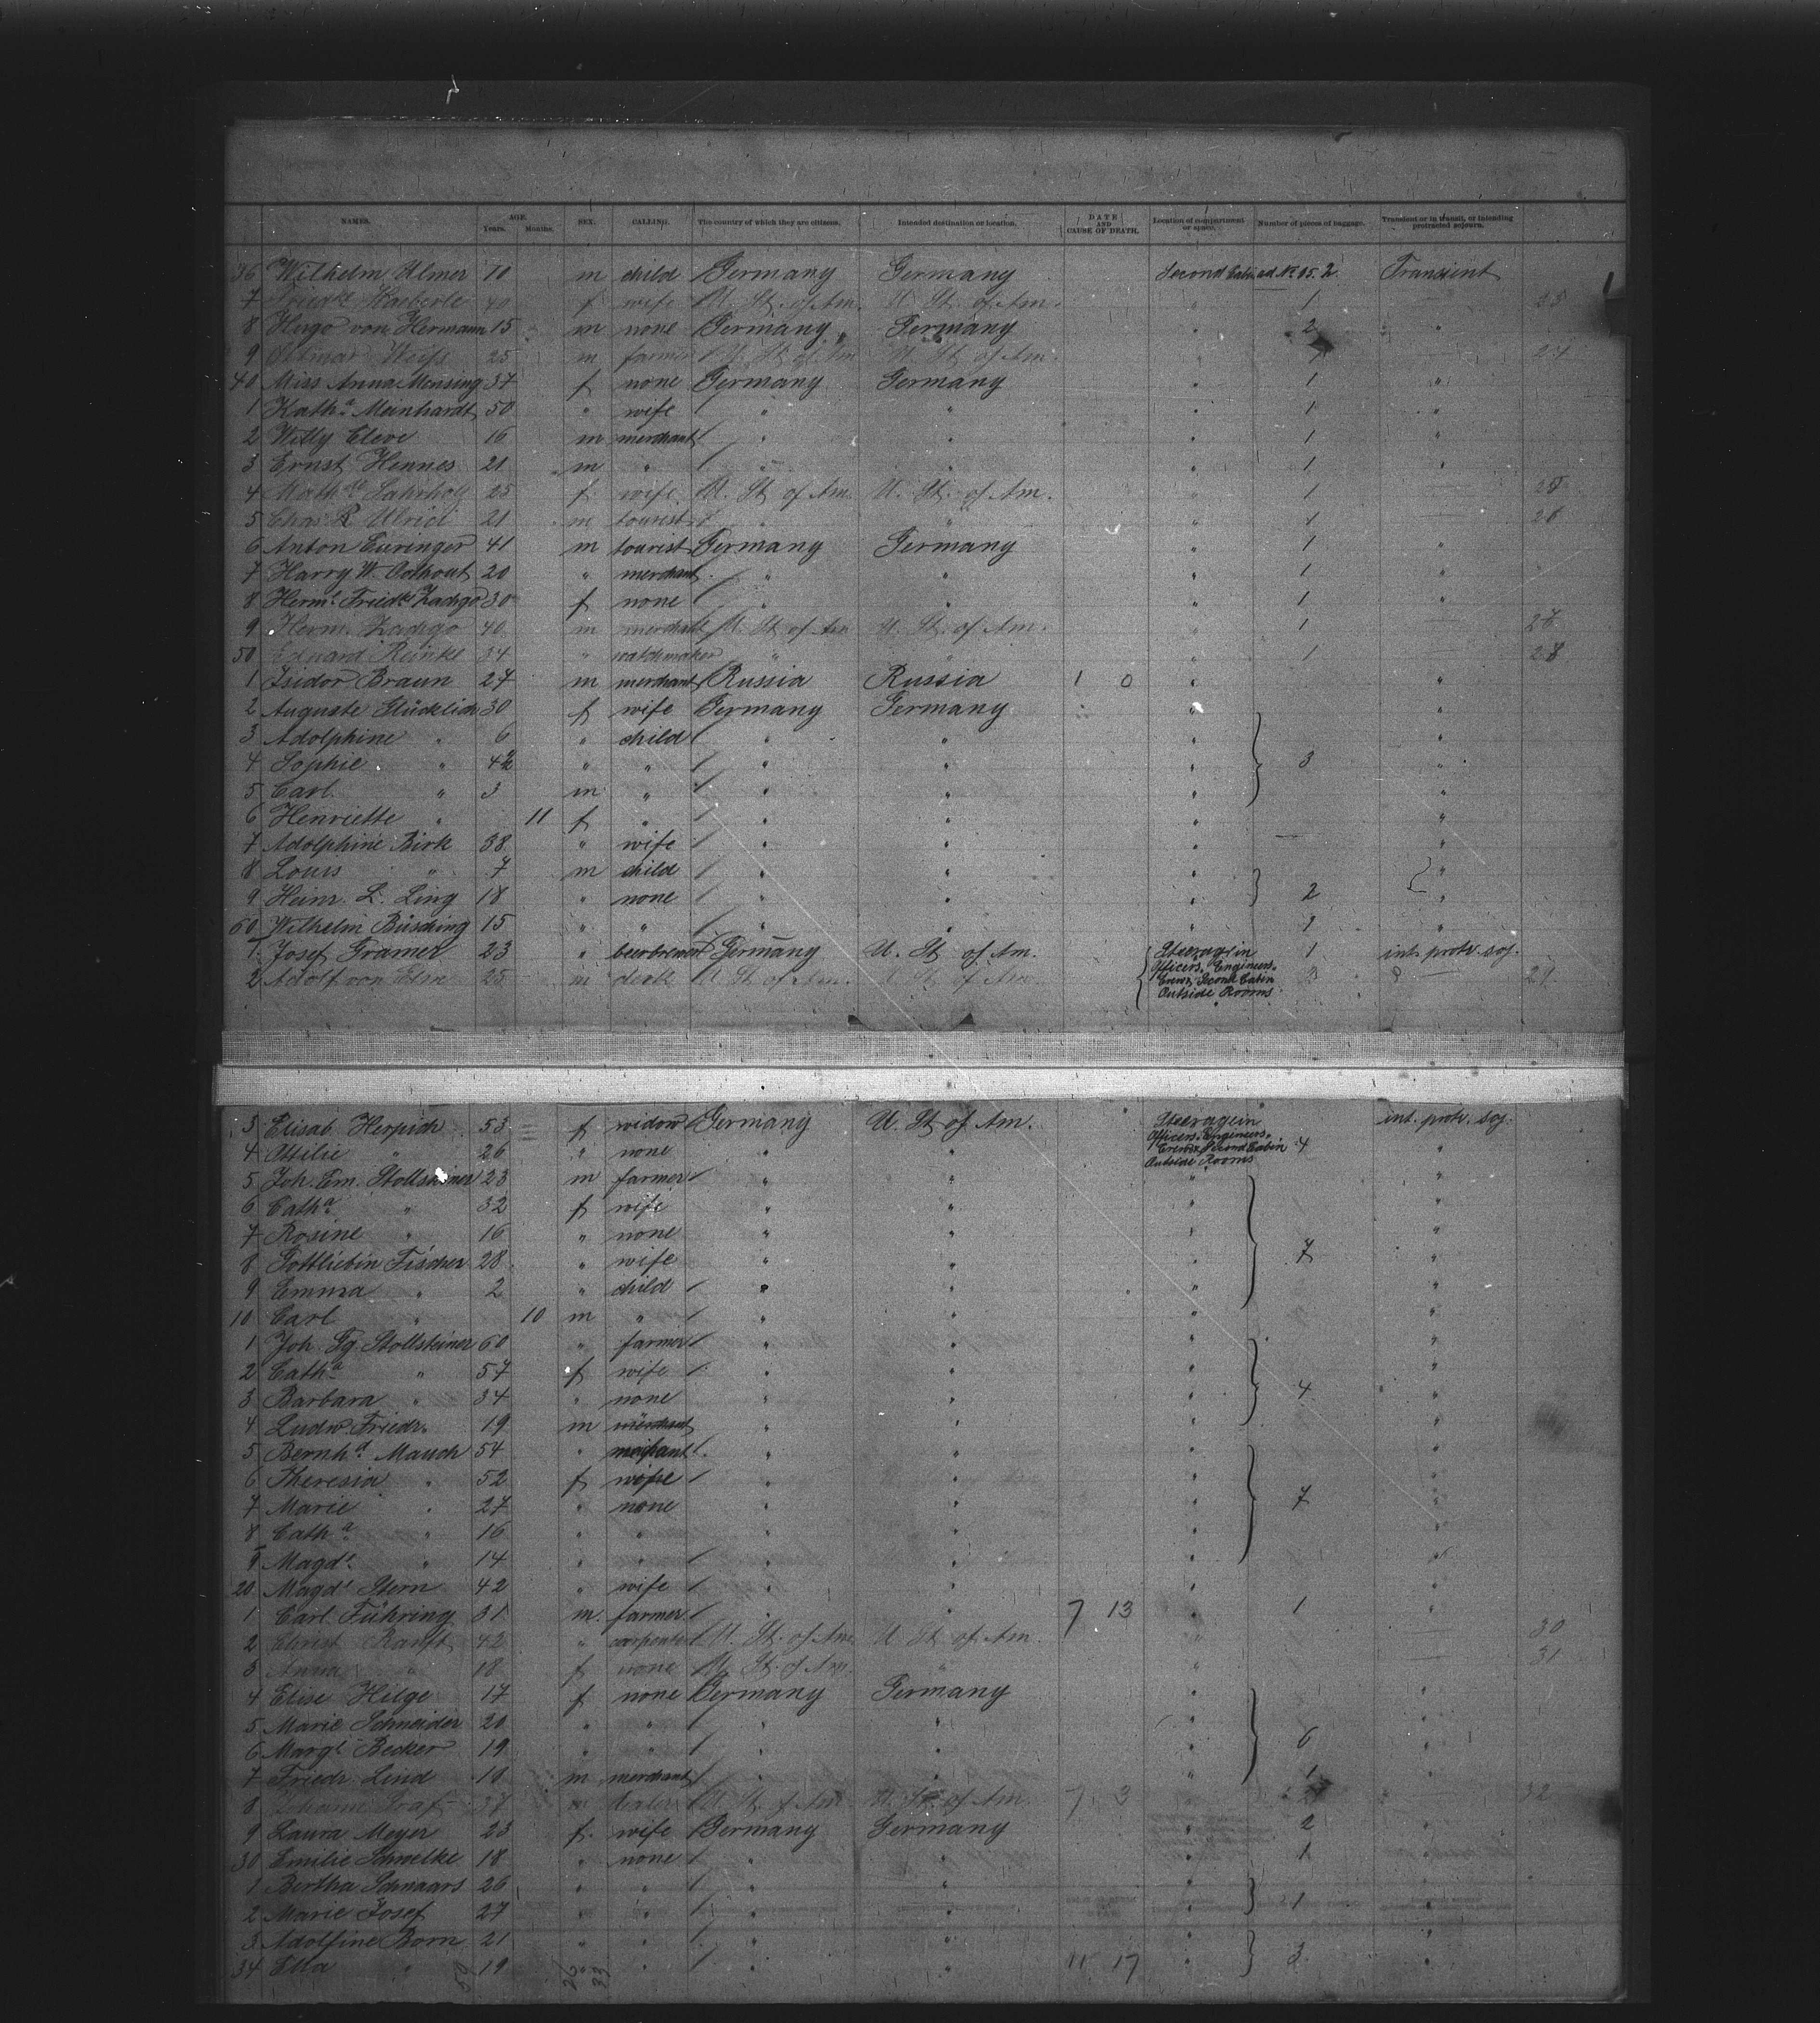 NAMES. AGE. Years. Months. SEX. CALLING. The country of which they are citizens. Intended destination or location. DATE AND CAUSE OF DEATH. Location of compartment or space. Number of pieces of baggage. Transient or in transit, or intending protracted sojourn.
36 Wilhelm Ulmer 10 m child Germany Germany Second Cabin 2 Transient
7 Haeberle 40 f wife U. St. of Am. U. St. of Am. " 1 — 23
8 Hugo von Hermann 15 m none Germany Germany " 2 "
9 Weiss 25 m farmer U. St. of Am. U. St. of Am. " 1 — 24
40 Miss Anna Mensing 37 f none Germany Germany " 1 "
1 Katha Meinhardt 50 " wife " " " 1 "
2 Willy Cleve 16 m merchant " " " 1 "
3 Ernst Hennes 21 m " " " " 1 "
4 25 f wife U. St. of Am. U. St. of Am. " 1 — 25
5 Chas R Ulrici 21 m tourist " " " 1 — 26
6 Anton Euringer 41 m tourist Germany Germany " 1 "
7 Harry W. Oothout 20 " merchant " " " 1 "
8 Herm. Friedke Zadigo 30 f none " " " 1 "
9 Herm. Zadigo 40 m merchant U. St. of Am. U. St. of Am. " 1 — 27
50 Eduard Reinke 34 " watchmaker " " " 1 — 28
1 Isidor Braun 24 m merchant Russia Russia 1 0 " "
2 Auguste Glücklich 30 f wife Germany Germany " "
3 Adolphine " 6 " child " " " "
4 Sophie " 4 " " " " " 3 "
5 Carl " 3 m " " " " "
6 Henriette " 11 f " " " " "
7 Adolphine Birk 38 " wife " " " — "
8 Louis " 7 m child " " " "
9 Heinr. L. Ling 18 " none " " " 2 "
60 Wilhelm Büsching 15 " " " " " 1 "
1 Josef Gramer 23 " beerbrewer Germany U. St. of Am. Steerage in 1 int. protr. soj.
Officers, Engineers,
2 Adolf von Elm 25 m clerk U. St. of Am. U. St. of Am. Crews, Second Cabin 3 — 29
Outside Rooms
3 Elisab. Herpich 53 f widow Germany U. St. of Am. Steerage in int. protr. soj.
Officers, Engineers,
4 Ottilie " 26 " none " " Crews, Second Cabin 4 "
Outside Rooms
5 Joh. Em. Stollsteiner 23 m farmer " " " "
6 Catha " 32 f wife " " " "
7 Rosine " 16 " none " " " "
8 Gottliebin Fischer 28 " wife " " " 7 "
9 Emma " 2 " child " " " "
10 Carl " 10 m " " " " "
1 Joh. Gg. Stollsteiner 60 " farmer " " " "
2 Catha " 57 f wife " " " "
3 Barbara " 34 " none " " " 4 "
4 Ludw. Friedr. 19 m merchant " " " "
5 Bernhd Mauch 54 " merchant " " " "
6 Theresia " 52 f wife " " " "
7 Marie " 27 " none " " " 7 "
8 Catha " 16 " " " " " "
9 Magd. " 14 " " " " " "
20 Magd. Stern 42 " wife " " " "
1 Carl Führing 31 m. farmer " " 7 13 " 1 "
2 Christ Ranft 42 " carpenter U. St. of Am. U. St. of Am. " — 30
3 Anna " 18 f none U. St. of Am. " " — 31
4 Elise Hilge 17 f none Germany Germany " "
5 Marie Schneider 20 " " " " " "
6 Margt. Becker 19 " " " " " 6 "
7 Friedr. Lind 10 m merchant " " " 1 "
8 Johann Graf 37 m U. St. of Am. U. St. of Am. 7 3 " 2 — 32
9 Laura Meyer 23 f. wife Germany Germany " 2 "
30 Emilie Schroelke 18 " none " " " 1 "
1 Bertha Schnaars 26 " " " " " "
2 Marie Josef 27 " " " " " 1 "
3 Adolfine Born 21 " " " " " "
34 Ella " 19 " " " " 11 17 " 3 "